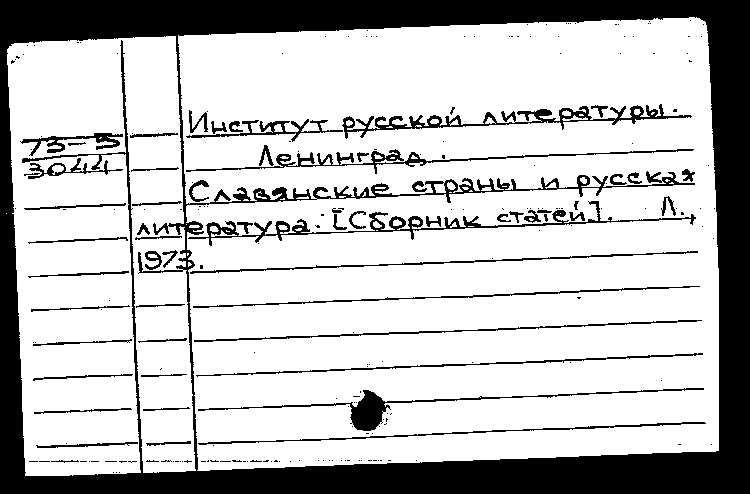 Институт русской литературы.
73-5
3044
Ленинград.
Славянские страны и русская
литература. [Сборник статей]. Л.,
1973.